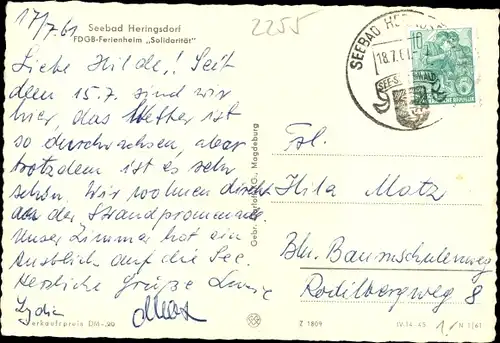 17/7.61
Seebad Heringsdorf
FDGB-Ferienheim „Solidarität"
2255
SEEBAD HERINGSDORF
18.7.61
10
Liebe Hilde! Seit
dem 15.7. sind wir
hier, das Wetter ist
so durchwachsen, aber
trotzdem ist es sehr
schön. Wir wohnen direkt
an der Strandpromenade.
Unser Zimmer hat ein
Ausblick auf die See.
Herzliche Grüße
Lydia
Max
Frl.
Hila Motz
Bln. Baumschulenweg
Rodelbergweg 8
Gebr. Garloff KG., Magdeburg
Verkaufspreis DM -,20
Z 1809
IV-14-45
N 1/61